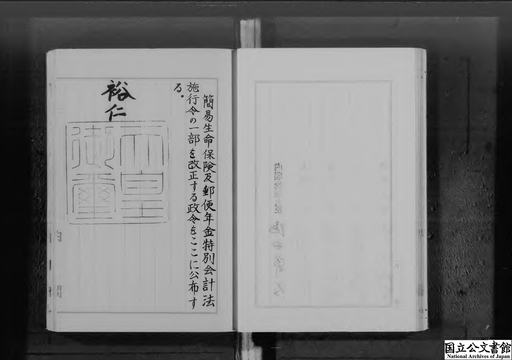 簡易生命保険及郵便年金特別会計法
施行令の一部を改正する政令をここに公布す
る。
裕仁
天皇
御璽
国立公文書館
National Archives of Japan